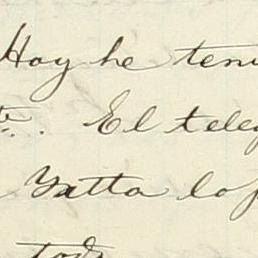 Hoy he teni
te. El teleg
Yatta lof
tod